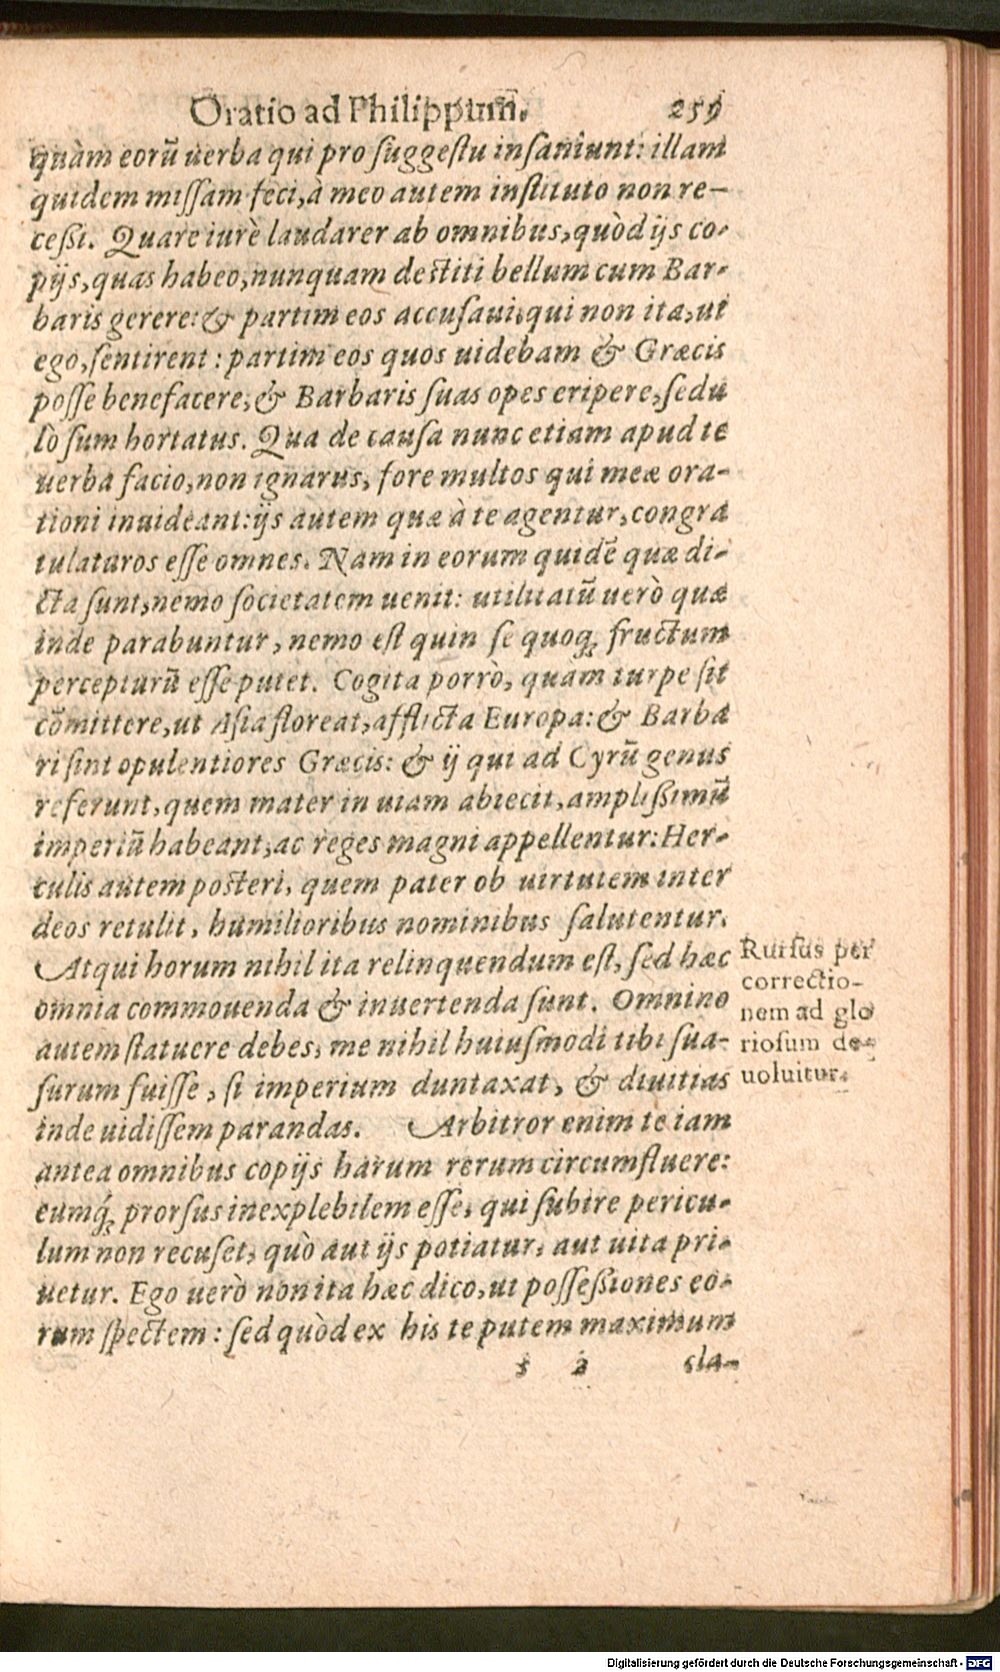 Oratio ad Philippum. 259
quàm eorũ uerba qui pro suggestu insaniunt: illam
quidem missam feci, à meo autem instituto non re-
cessi. Quare iurè laudarer ab omnibus, quòd ijs co-
pijs, quas habeo, nunquam destiti bellum cum Bar-
baris gerere: & partim eos accusaui, qui non ita, ut
ego, sentirent: partim eos quos uidebam & Græcis
posse benefacere, & Barbaris suas opes eripere, sedu
lò sum hortatus. Qua de causa nunc etiam apud te
uerba facio, non ignarus, fore multos qui meæ ora-
tioni inuideant: ijs autem quæ à te agentur, congra
tulaturos esse omnes. Nam in eorum quidẽ quæ di-
cta sunt, nemo societatem uenit: utilitatũ uerò quæ
inde parabuntur, nemo est quin se quoq; fructum
percepturũ esse putet. Cogita porrò, quàm turpe sit
cõmittere, ut Asia floreat, afflicta Europa: & Barba
ri sint opulentiores Græcis: & ij qui ad Cyrũ genus
referunt, quem mater in uiam abiecit, amplissimũ
imperiũ habeant, ac reges magni appellentur: Her-
culis autem posteri, quem pater ob uirtutem inter
deos retulit, humilioribus nominibus salutentur.
Atqui horum nihil ita relinquendum est, sed hæc
omnia commouenda & inuertenda sunt. Omnino
autem statuere debes, me nihil huiusmodi tibi sua-
surum fuisse, si imperium duntaxat, & diuitias
inde uidissem parandas. Arbitror enim te iam
antea omnibus copijs harum rerum circumfluere:
eumq; prorsus inexplebilem esse, qui subire pericu-
lum non recuset, quò aut ijs potiatur, aut uita pri-
uetur. Ego uerò non ita hæc dico, ut possessiones eo-
rum spectem: sed quòd ex his te putem maximum
s 2 cla-
Rursus per
correctio-
nem ad glo
riosum de-
uoluitur.
Digitalisierung gefördert durch die Deutsche Forschungsgemeinschaft - DFG